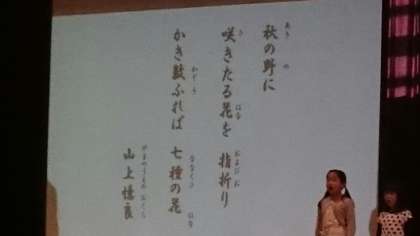 あき の
秋の野に
さ はな およびお
咲きたる花を 指折り
かぞ ななくさ はな
かき数ふれば 七種の花
やまのうえの おくら
山上憶良